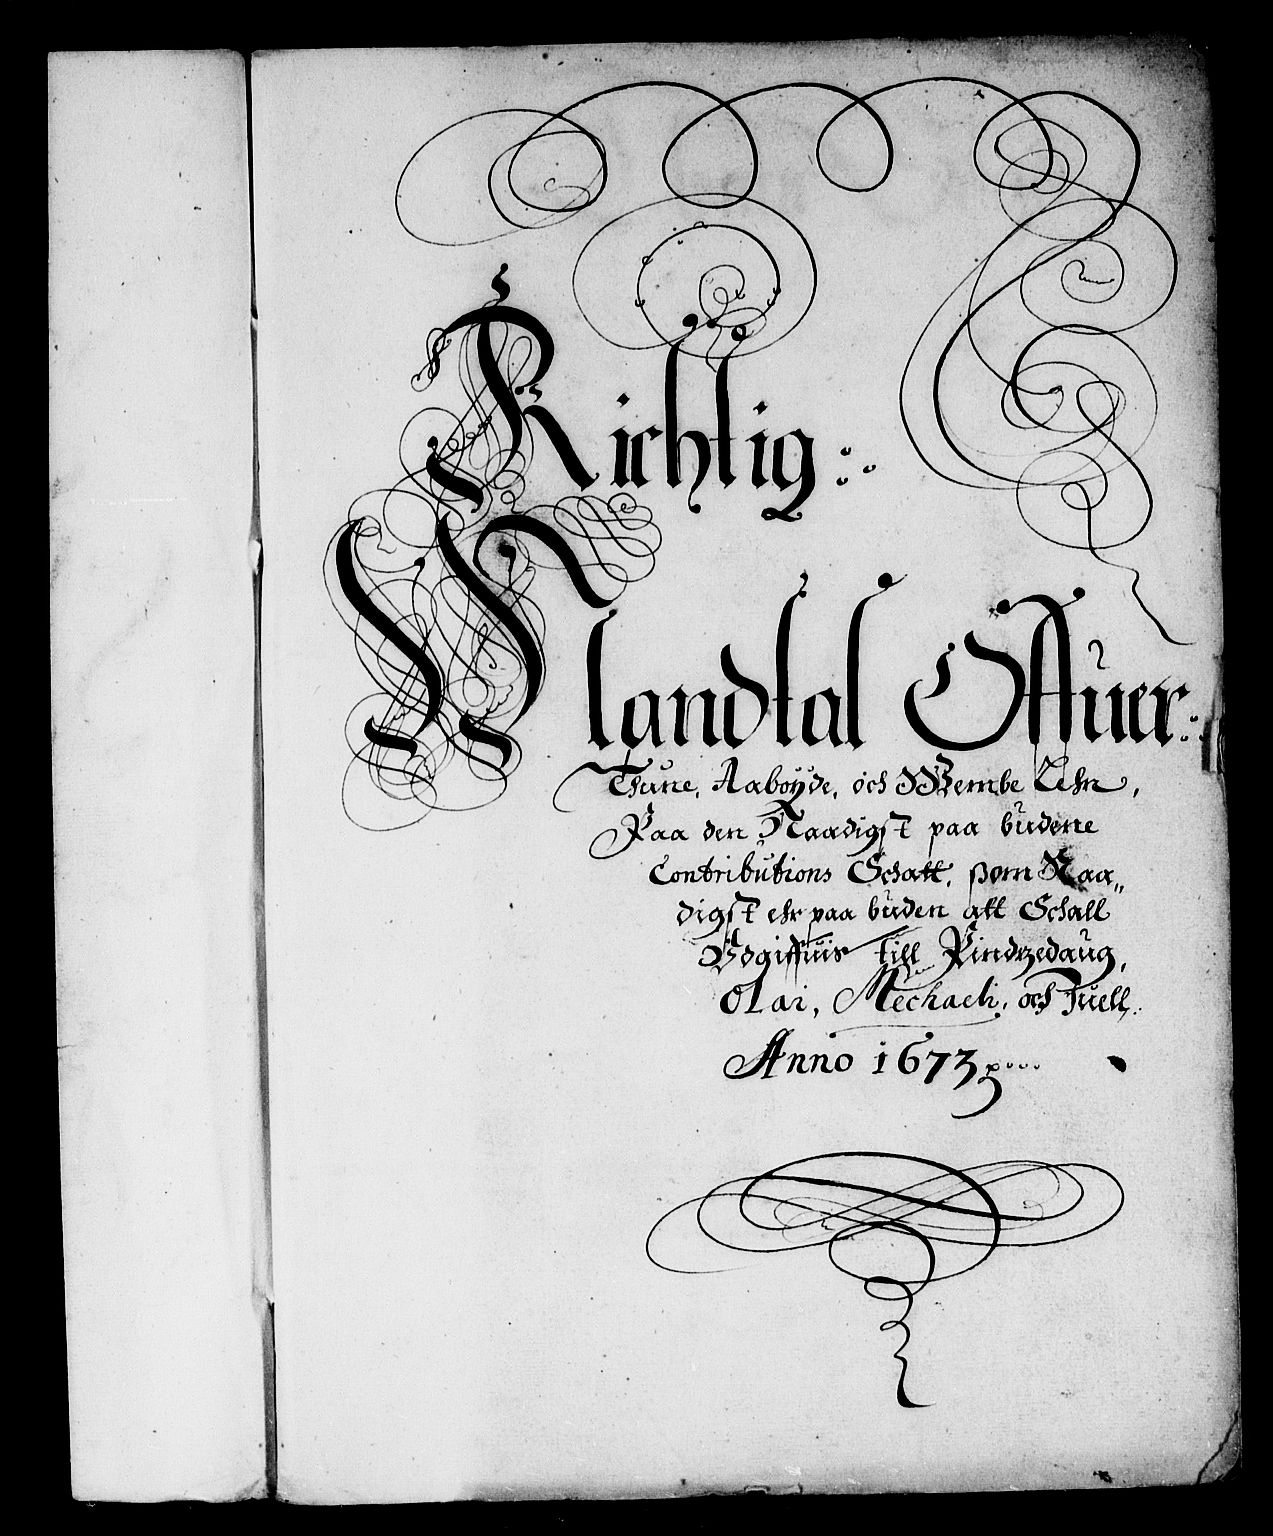 Richtig :
Mandtal Offuer :
Thune, Aaboÿde, och Wembe Lehn,
Paa den Naadigst paa budene
Contributions Schatt, som Naa„
digst ehr paa buden att Schall
Vdgiffuis till Pindzedaug,
Olai, Mechaeli, och Juell.
Anno 1673